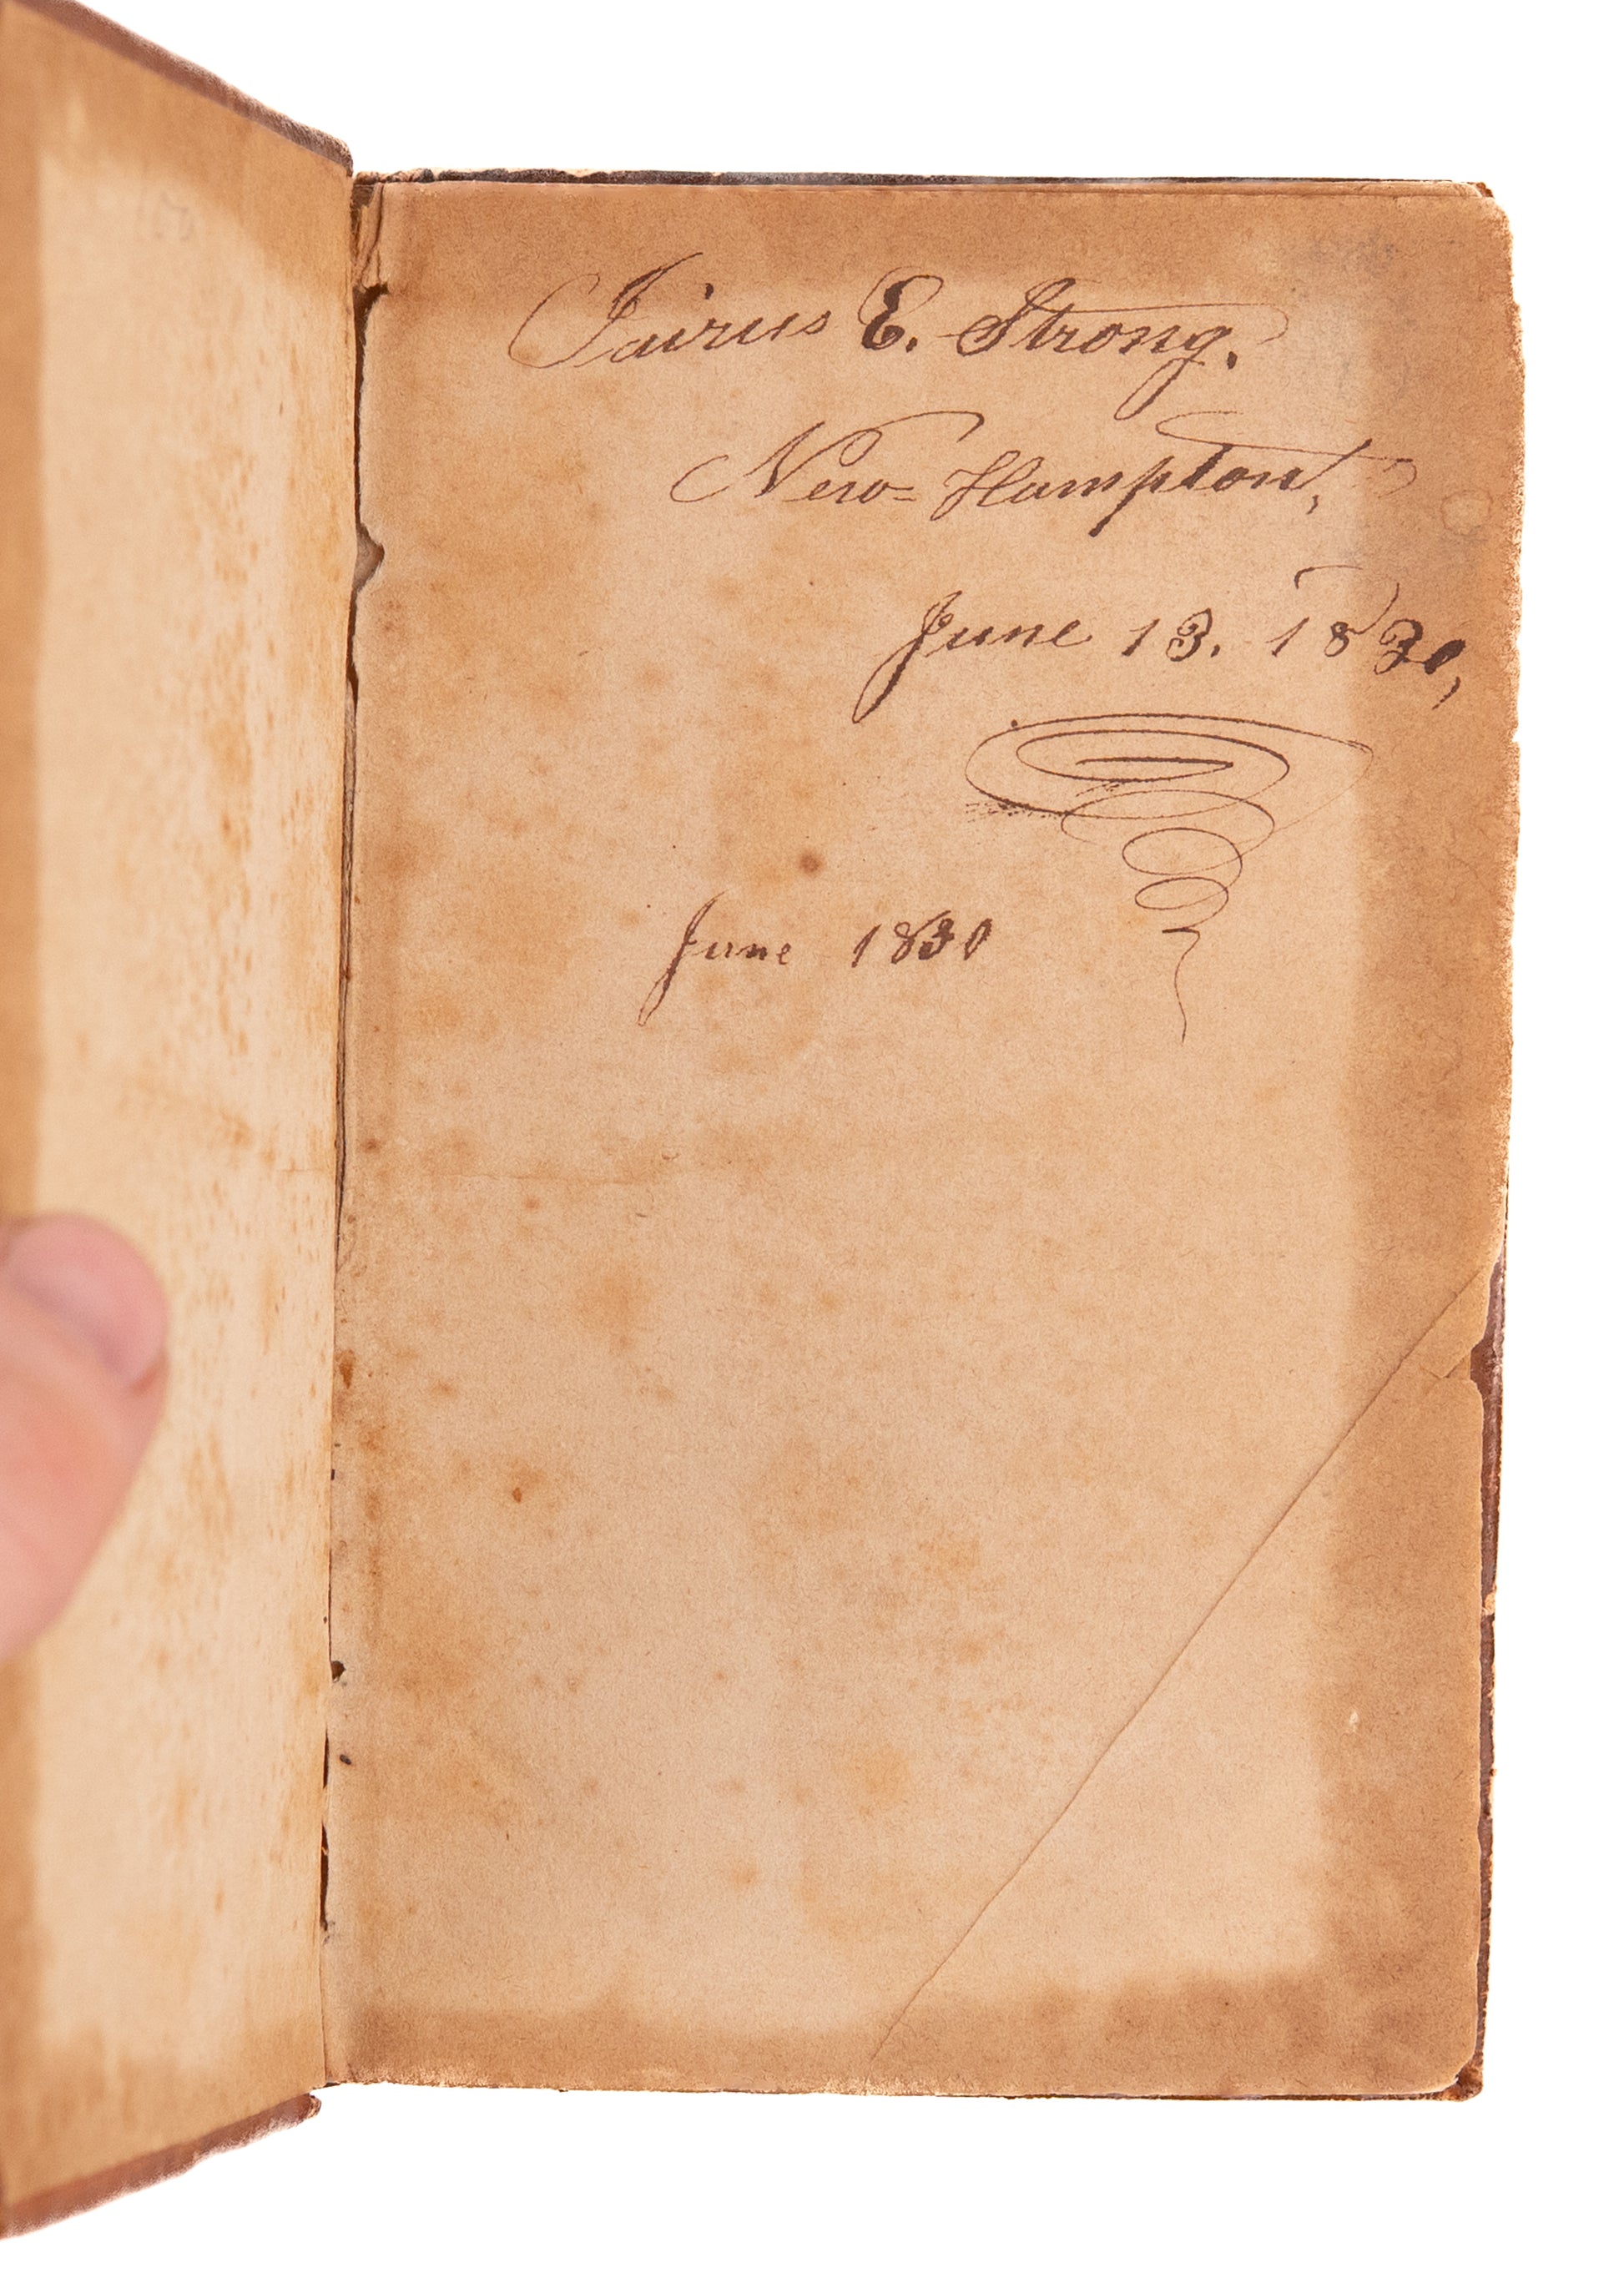 Jairus E. Strong.
New-Hampton,
June 13. 1830,
June 1830